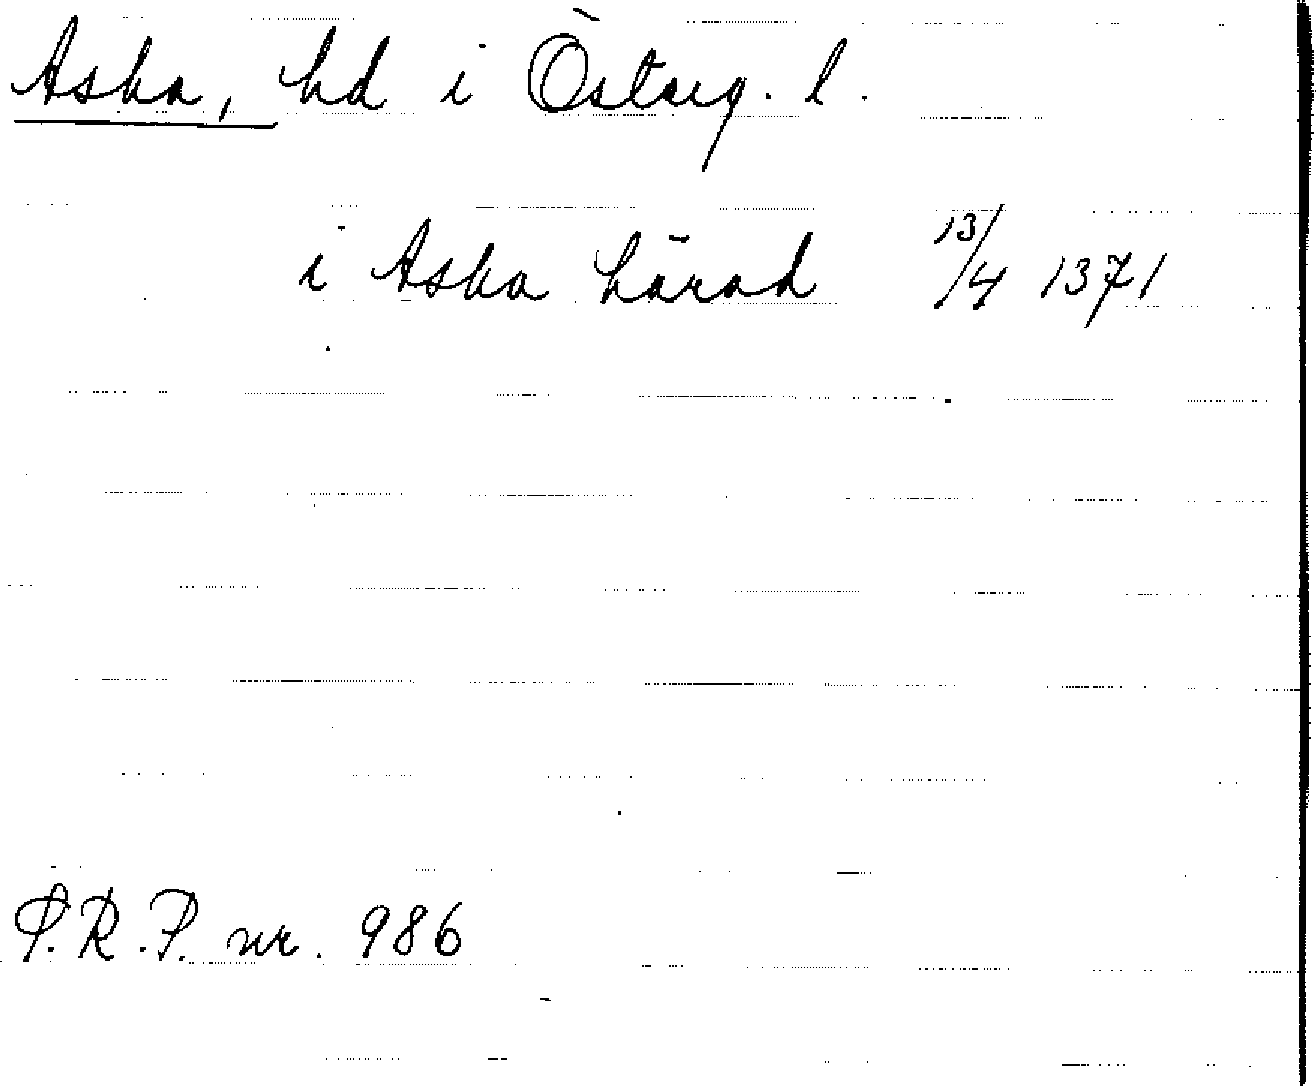 Aska, hd i Österg. l.
i Aska härad 13/4 1371
S.R.P. nr. 986